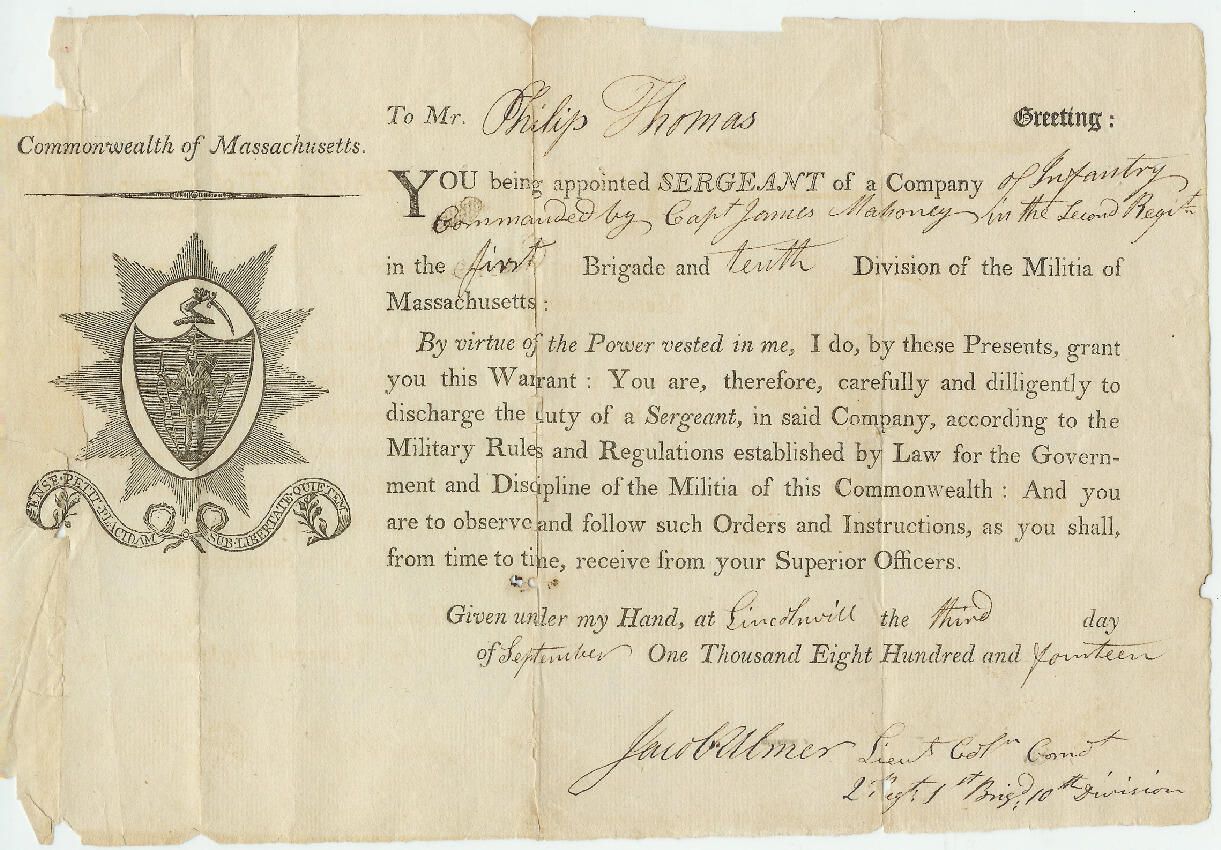 Commonwealth of Massachusetts.
ENSE·PETIT·PLACIDAM
SUB·LIBERTATE·QUIETEM
To Mr. Philip Thomas Greeting:
YOU being appointed SERGEANT of a Company of Infantry
Commanded by Capt James Mahoney in the Second Regt
in the first Brigade and tenth Division of the Militia of
Massachusetts:
By virtue of the Power vested in me, I do, by these Presents, grant
you this Warrant: You are, therefore, carefully and dilligently to
discharge the duty of a Sergeant, in said Company, according to the
Military Rules and Regulations established by Law for the Govern-
ment and Discipline of the Militia of this Commonwealth: And you
are to observe and follow such Orders and Instructions, as you shall,
from time to time, receive from your Superior Officers.
Given under my Hand, at Lincolnvill the third day
of September One Thousand Eight Hundred and fourteen
Jacob Ulmer Lieut Coln Comdt
2d Regt. 1st Brigd. 10th Division